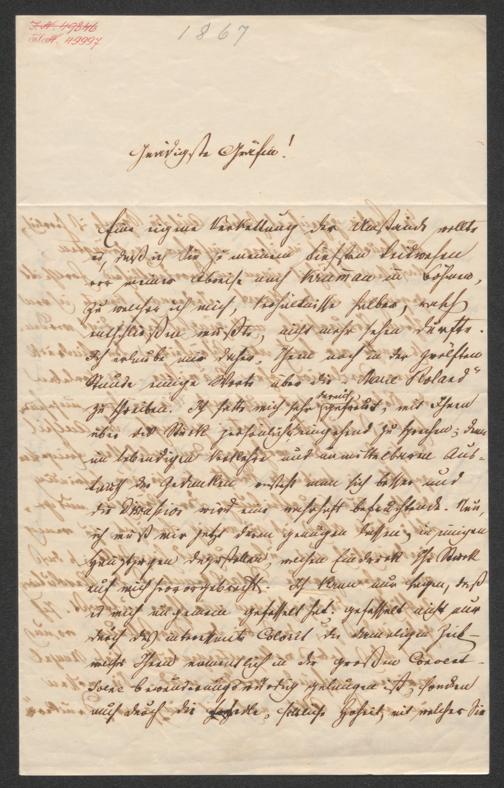 I. N. 49846
I. N. 49997
1867
Gnädigste Gräfin!
Eine eigene Verkettung der Umstände wollte
es, daß ich Sie zu meinem tiefsten Leidwesen
vor meiner Abreise nach in Böhmen,
zu welcher ich mich, Verhältnisse halber, rasch
entschließen mußte, nicht mehr sehen durfte.
Ich erlaube mir daher, Ihnen noch in der zwölften
Stunde einige Worte über die „Marie Roland“
zu schreiben. Ich hatte mich sehr darauf gefreut, mit Ihnen
über das Werk persönlich eingehend zu sprechen; denn
im lebendigen Verkehre und unmittelbaren Aus-
tausch der Gedanken versteht man sich besser und
die Discussion wird eine wahrhaft befruchtende. Nun,
ich muß mir jetzt daran genügen lassen, in einigen
Hauptzügen darzustellen, welchen Eindruck Ihr Werk
auf mich hervorgebracht. Ich kann nur sagen, daß
es mich ungemein gefesselt hat: gefesselt nicht nur
durch das interessante Colorit der damaligen Zeit
welches Ihnen namentlich in der großen Convent-
Scene bewunderungswürdig gelungen ist, sondern
auch durch die sittliche Hoheit, mit welcher Sie